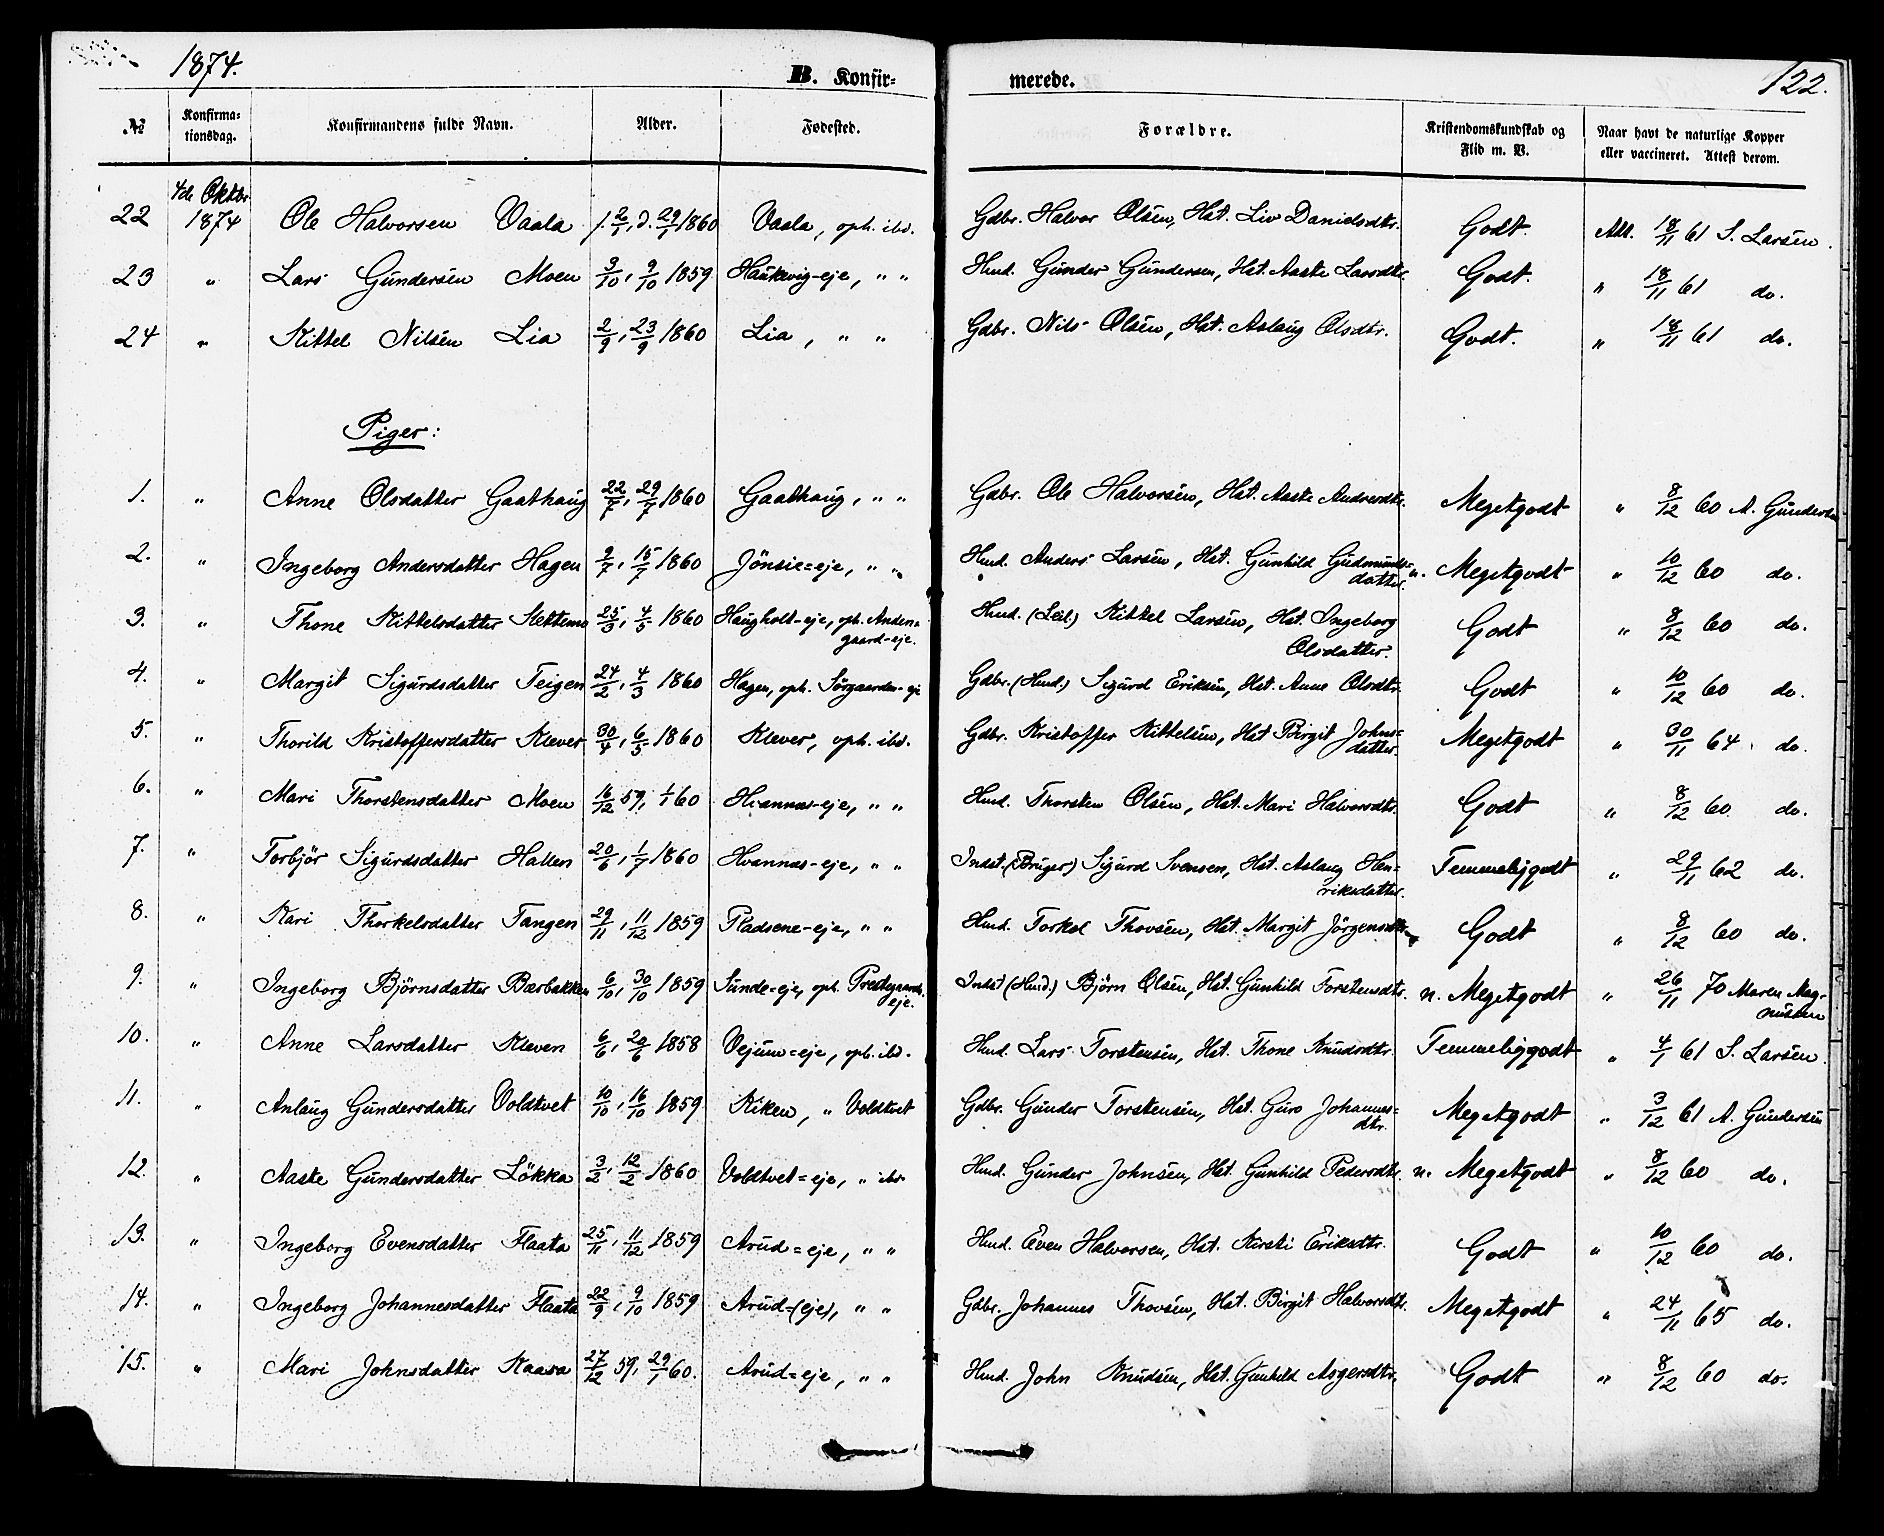 1874.
B. Konfir-
merede.
122.
№ Konfirma-tionsdag. Konfirmandens fulde Navn. Alder. Fødested. Forældre. Kristendomskundskab og Flid m. V. Naar havt de naturlige Kopper eller vaccineret. Attest derom.
22 4de Oktbr 1874 Ole Halvorsen Vaala f. 2/1, d. 29/1 1860 Vaala, oph. ibd. Gdbr. Halvor Olsen, Hst. Liv Danielsdtr. Godt. Att. 18/11 61 S. Larsen.
23 " Lars Gundersen Moen 3/10, 9/10 1859 Haukvig-eje, " " Hmd. Gunder Gundersen, Hst. Aaste Larsdtr. Godt. " 18/11 61 do.
24 " Kittel Nilsen Lia 2/9, 23/9 1860 Lia, " " Gdbr. Nils Olsen, Hst. Aslaug Olsdtr. Godt. " 18/11 61 do.
Piger:
1. " Anne Olsdatter Gaathaug 22/7, 29/7 1860 Gaathaug, " " Gdbr. Ole Halvorsen, Hst. Aaste Andersdtr. Megetgodt " 8/12 60 A. Gundersen
2. " Ingeborg Andersdatter Hagen 9/7, 15/7 1860 Jönsie=eje, " " Hmd. Anders Larsen, Hst. Gunhild Gudmunds=datter n. Megetgodt " 10/12 60 do.
3. " Thone Kittelsdatter Slettemo 25/3, 4/5 1860 Haugholt-eje, oph. Anden=gaard-eje. Hmd. (Leil.) Kittel Larsen, Hst. Ingeborg Olsdatter. Godt " 8/12 60 do.
4. " Margit Sigurdsdatter Teigen 24/2, 4/3 1860 Hagen, oph. Sörgaarden-eje Gdbr. (Hmd.) Sigurd Eriksen, Hst. Anne Olsdtr. Godt " 10/12 60 do.
5. " Thorild Kristoffersdatter Klever 30/4, 6/5 1860 Klever, oph. ibd. Gdbr. Kristoffer Kittelsen, Hst Birgit Johns=datter Megetgodt " 30/11 64 do.
6. " Mari Thorstensdatter Moen 16/12 59, 1/1 60 Hvannas-eje, " " Hmd. Thorsten Olsen, Hst. Mari Halvorsdtr. Godt " 8/12 60 do.
7. " Torbjör Sigurdsdatter Hallen 20/6, 1/7 1860 Hvannas-eje, " " Indst. (Bruger) Sigurd Svensen, Hst. Aslaug Hen-riksdatter. Temmeligodt " 29/11 62 do.
8. " Kari Thorkelsdatter Tangen 29/11, 11/12 1859 Pladsene-eje, " " Hmd. Torkel Thovsen, Hst. Margit Jörgensdtr. Godt " 8/12 60 do.
9. " Ingeborg Björnsdatter Bærbakken 6/10, 30/10 1859 Sunde=eje, oph. Prestegaards-eje. Indst (Hmd.) Björn Olsen, Hst. Gunhild Torstensdtr. n. Megetgodt " 26/11 70 Maren Mag-nussen
10. " Anne Larsdatter Kleven 6/6, 20/6 1858 Vejum=eje, oph. ibd. Hmd. Lars Torstensen, Hst. Thone Knudsdtr. Temmeliggodt " 4/1 61 S. Larsen.
11. " Anlaug Gundersdatter Voldtvet 10/10, 16/10 1859 Kiken, " Voldtvet Gdbr. Gunder Torstensen, Hst. Guro Johannes=dtr. Megetgodt " 3/12 61 A. Gundersen
12. " Aaste Gundersdatter Lökka 3/2, 12/2 1860 Voldtvet=eje, " ibd Hmd. Gunder Johnsen, Hst. Gunhild Pedersdtr. n. Megetgodt " 8/12 60 do.
13. " Ingeborg Evensdatter Flaata 25/11, 11/12 1859 Aarud=eje, " " Hmd. Even Halvorsen, Hst. Kirsti Eriksdtr. Godt " 10/12 60 do.
14. " Ingeborg Johannesdatter Flaata 22/9, 9/10 1859 Aarud=(eje), " " Gdbr. Johannes Thovsen, Hst. Birgit Halvorsdtr. Megetgodt " 24/11 65 do.
15. " Mari Johnsdatter Kaasa 27/12 59, 29/1 60. Aarud=eje, " " Hmd. John Knudsen, Hst. Gunhild Asgersdtr. Godt " 8/12 60 do.